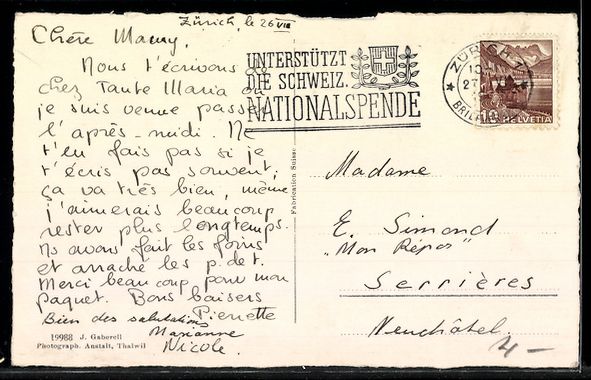 Zürich, le 26 VII
Chère Mamy,
Nous t'écrivons de
chez Tante Maria où
je suis venue passer
l'après-midi. Ne
t'en fais pas si je
t'écris pas souvent,
ça va très bien, même
j'aimerais beaucoup
rester plus longtemps.
Ns avons fait les foins
et arraché les p.d.t.
Merci beaucoup pour mon
paquet. Bons baisers
Pierrette
Bien des salutations
Marianne
Nicole.
19988 J. Gaberell
Photograph. Anstalt, Thalwil
Fabrication Suisse
UNTERSTÜTZT
DIE SCHWEIZ.
NATIONALSPENDE
ZÜRICH
HELVETIA
10
Madame
E. Simond
"Mon Répos"
Serrières
Neuchâtel.
4-